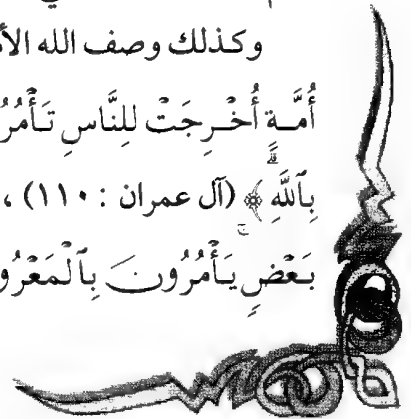 وكذلك وصف الله الأ
أُمَّةٍ أُخْرِجَتْ لِلنَّاسِ تَأْمُرُ
بِٱللَّهِ ﴾ (آل عمران : ١١٠) ،
بَعْضٍ يَأْمُرُونَ بِٱلْمَعْرُو